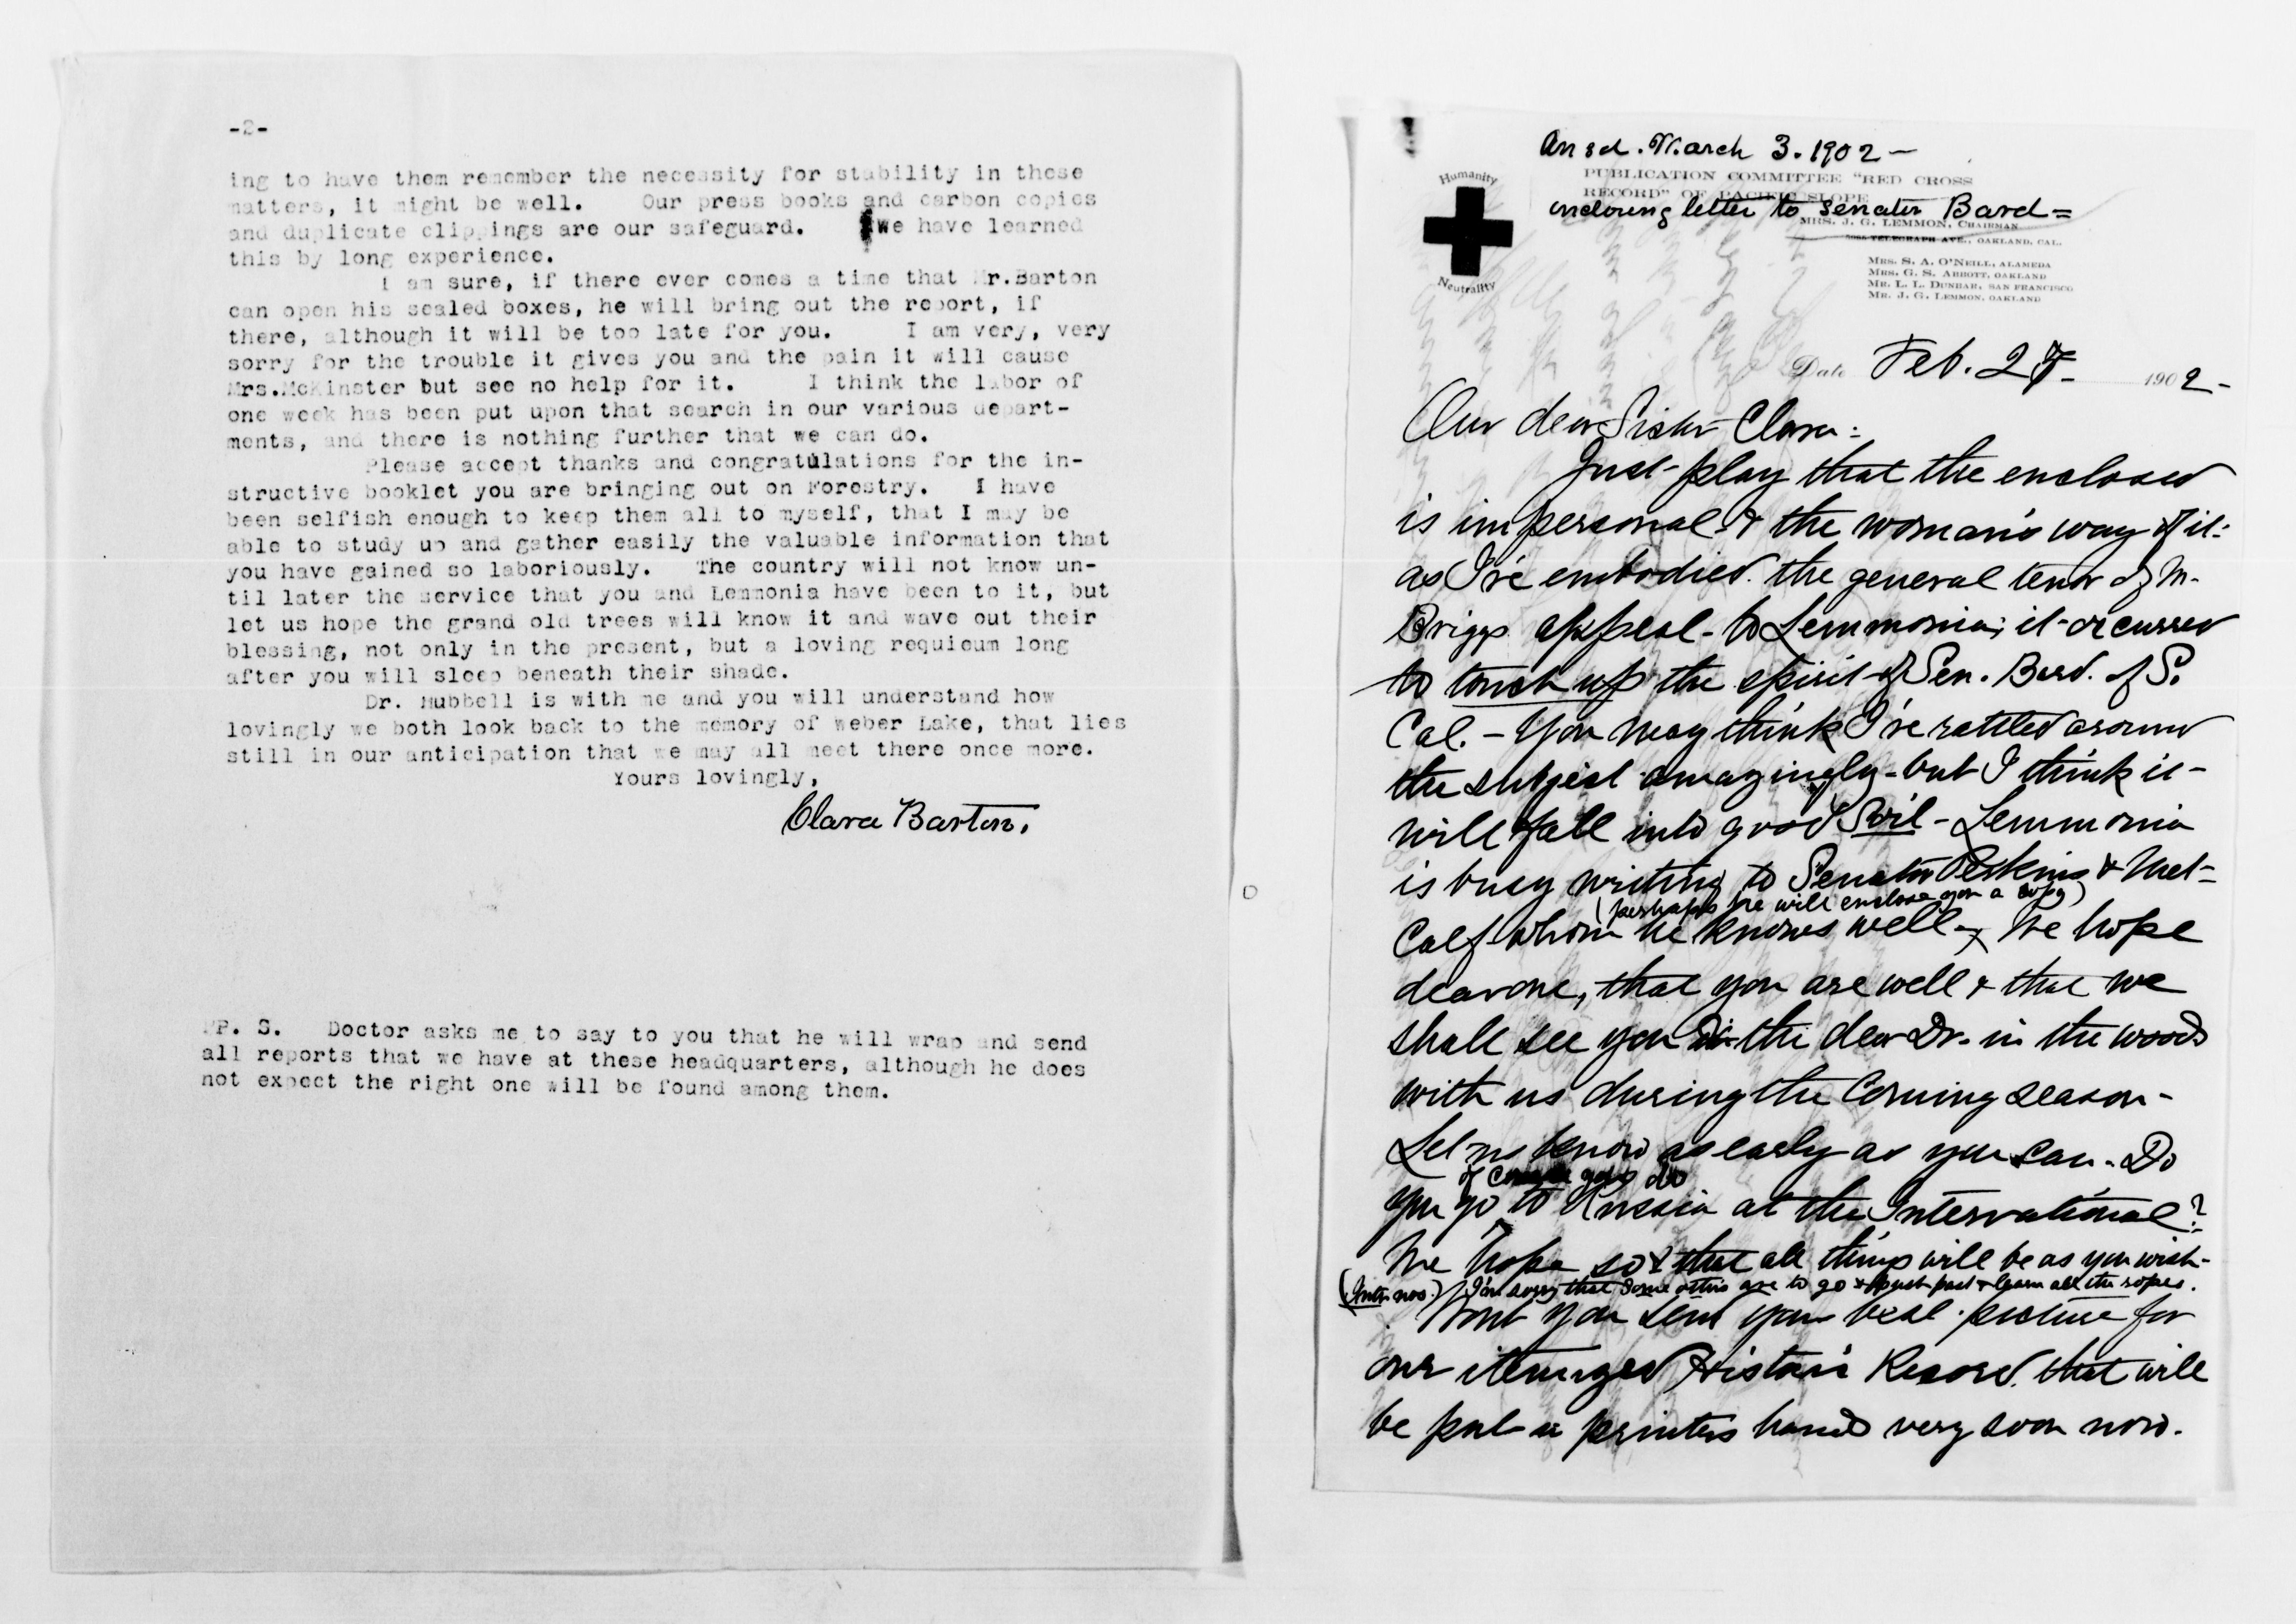 -2-
ing to have them remember the necessity for stability in these
matters, it might be well. Our press books and carbon copies
and duplicate clippings are our safeguard. We have learned
this by long experience.
I am sure, if there ever comes a time that Mr.Barton
can open his sealed boxes, he will bring out the report, if
there, although it will be too late for you. I am very, very
sorry for the trouble it gives you and the pain it will cause
Mrs.McKinster but see no help for it. I think the labor of
one week has been put upon that search in our various depart-
ments, and there is nothing further that we can do.
Please accept thanks and congratulations for the in-
structive booklet you are bringing out on Forestry. I have
been selfish enough to keep them all to myself, that I may be
able to study up and gather easily the valuable information that
you have gained so laboriously. The country will not know un-
til later the service that you and Lemmonia have been to it, but
let us hope the grand old trees will know it and wave out their
blessing, not only in the present, but a loving requieum long
after you will sleep beneath their shade.
Dr. Hubbell is with me and you will understand how
lovingly we both look back to the memory of Weber Lake, that lies
still in our anticipation that we may all meet there once more.
Yours lovingly,
Clara Barton.
P. S. Doctor asks me to say to you that he will wrap and send
all reports that we have at these headquarters, although he does
not expect the right one will be found among them.
Ansd. March 3. 1902 -
Humanity
Neutrality
PUBLICATION COMMITTEE "RED CROSS
RECORD" OF PACIFIC SLOPE
inclosing letter to Senator Bard =
MRS. J. G. LEMMON, CHAIRMAN
TELEGRAPH AVE., OAKLAND, CAL.
MRS. S. A. O'NEILL, ALAMEDA
MRS. G. S. ABBOTT, OAKLAND
MR. L. L. DUNBAR, SAN FRANCISCO
MR. J. G. LEMMON, OAKLAND
Date Feb. 27- 1902-
Our dear Sister Clara:
Just play that the enclosed
is impersonal & the woman's way of it:
as I've embodied the general tenor of M-
Briggs appeal - to Lemmonia; it occurred
to touch up the spirit of Sen. Bard. of S.
Cal. - You may think I've rattled around
the subject amazingly - but I think it-
will fall into good Soil - Lemmonia
is busy writing to Senator Perkins & Met-
(perhaps he will enclose you a copy)
calf whom he knows well - We hope
dear one, that you are well & that we
shall see you & the dear Dr. in the woods
with us during the coming season -
Let us know as early as you can. Do
of course you do
you go to Russia at the International?
We hope so & that all things will be as you wish-
(Inter nos.) I'm sorry that some others are to go & push past & learn all the ropes.
Wont you send your best picture for
our itemized Historic Record. that will
be put in printers hands very soon now.